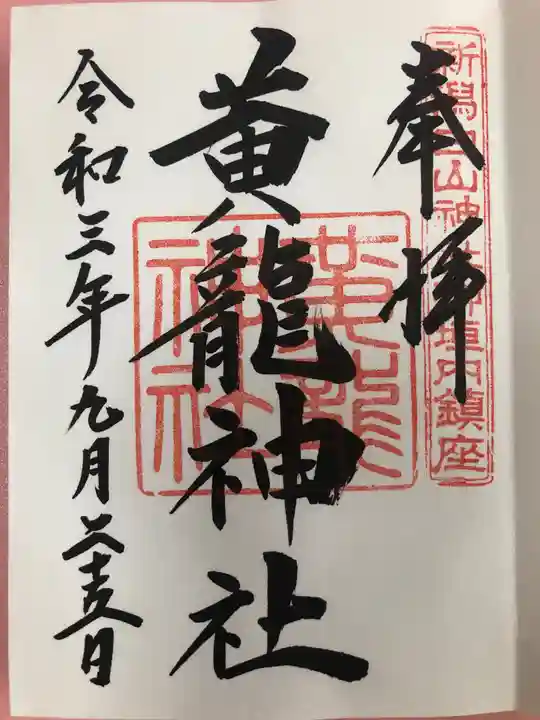 奉拝
新潟白山神社垣内鎮座
黄龍神社
黄龍
神社
令和三年九月二十五日